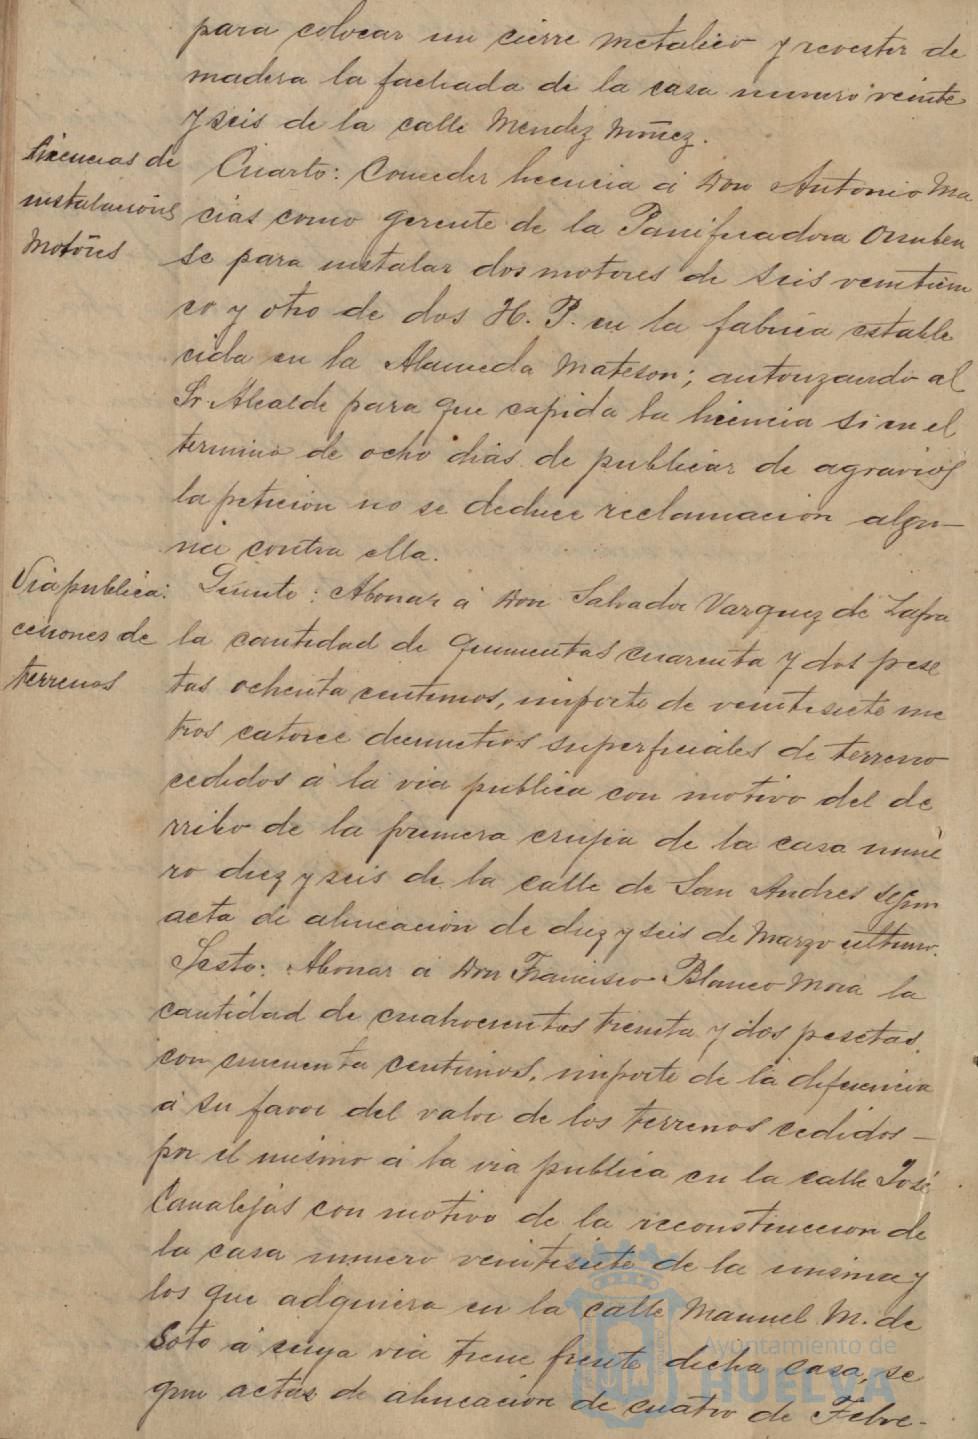 para colocar un cierre metalico y revestir de
madera la fachada de la casa numero veinte
y seis de la calle Mendez Nuñez.
Licencias de
instalaciones
Motores
Cuarto: Conceder licencia á Don Antonio Ma
cias como gerente de la Panificadora Onuben
se para instalar dos motores de seis veinticin
co y otro de dos H. P. en la fabrica estable
cida en la Alameda Mateson; autorizando al
Sr. Alcalde para que expida la licencia si en el
termino de ocho dias de publicar de agravios
la peticion no se deduce reclamacion algu-
na contra ella.
Via publica:
cesiones de
terrenos
Quinto: Abonar á Don Salvador Vazquez de Zafra
la cantidad de quinientas cuarenta y dos pese
tas ochenta centimos, importe de veintisiete me
tros catorce decimetros superficiales de terreno
cedidos á la via publica con motivo del de
rribo de la primera crujia de la casa nume
ro diez y seis de la calle de San Andres segun
acta de alineacion de diez y seis de Marzo ultimo.
Sesto: Abonar á Don Francisco Blanco Mora la
cantidad de cuatrocientas treinta y dos pesetas
con cincuenta centimos, importe de la diferencia
á su favor del valor de los terrenos cedidos-
por el mismo á la via publica en la calle José
Canalejas con motivo de la reconstruccion de
la casa numero veintisiete de la misma y
los que adquiera en la calle Manuel M. de
Soto á cuya via tiene frente dicha casa, se
gun actas de alineacion de cuatro de Febre-
Ayuntamiento de
HUELVA